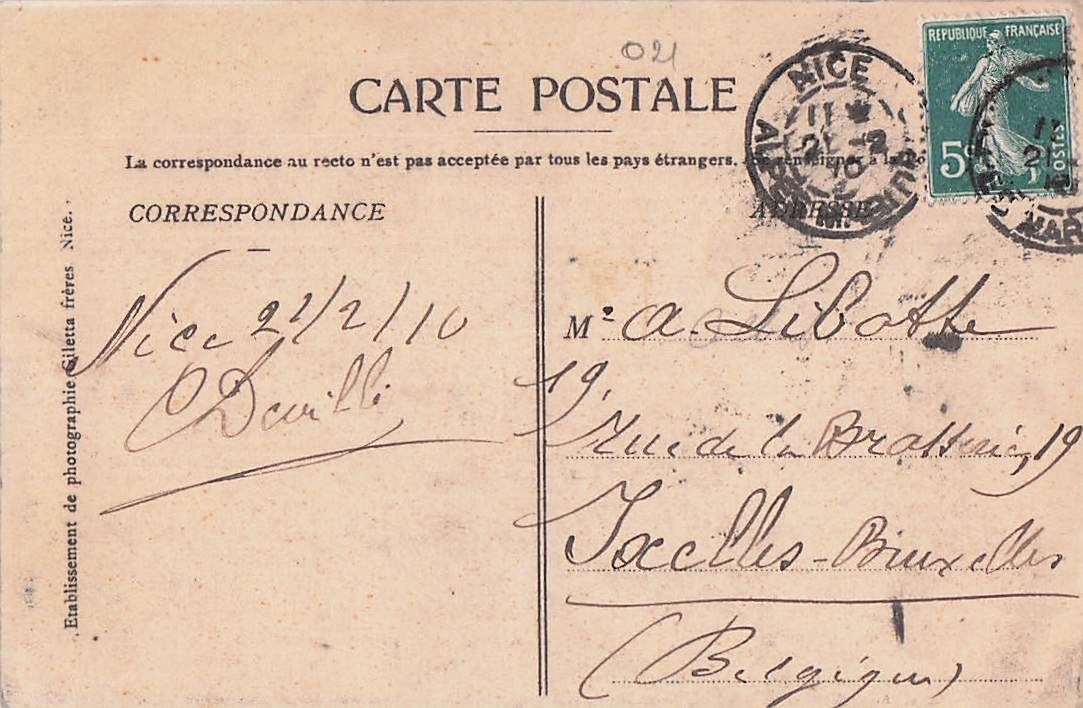 021
CARTE POSTALE
La correspondance au recto n'est pas acceptée par tous les pays étrangers. Se renseigner à la
CORRESPONDANCE
ADRESSE
NICE
11
21 -2
10
ALPES MARITIMES
REPUBLIQUE FRANÇAISE
5c
POSTES
11
21
MAR
Nice 21/2/10
Deville
Mr A. Libotte
19, rue de la Brasserie, 19
Ixelles-Bruxelles
(Belgique)
Etablissement de photographie Giletta frères Nice.